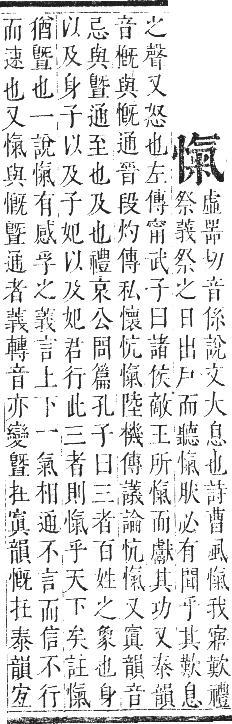 愾
虛器切音係說文大息也詩曹風愾我寤歎禮
祭義祭之日出戶而聽愾肰必有聞乎其歎息
之聲又怒也左傳甯武子曰諸侯敵王所愾而獻其功又泰韻
音慨與慨通晉段灼傳私懷忼愾陸機傳議論忼愾又寘韻音
忌與曁通至也及也禮哀公問篇孔子曰三者百姓之象也身
以及身子以及子妃以及妃君行此三者則愾乎天下矣註愾
猶曁也一說愾有感孚之義言上下一氣相通不言而信不行
而速也又愾與慨曁通者義轉音亦變曁扗寘韻慨扗泰韻